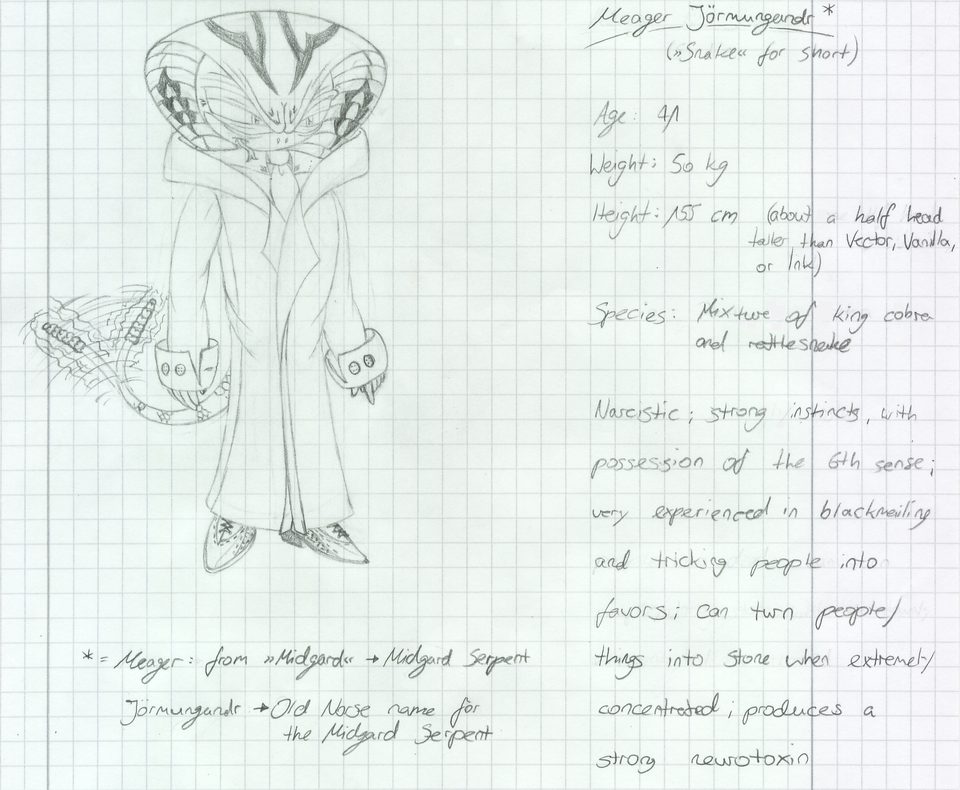 Meager Jörmungandr *
(»Snake« for short)
Age: 41
Weight: 50 kg
Height: 155 cm (about a half head
taller than Vector, Vanilla,
or Ink)
Species: Mixture of king cobra
and rattlesnake
Narcistic; strong instincts, with
possession of the 6th sense;
very experienced in blackmailing
and tricking people into
favors; can turn people/
things into stone when extremely
concentrated; produces a
strong neurotoxin
* = Meager: from »Midgard« → Midgard Serpent
Jörmungandr → Old Norse name for
the Midgard Serpent